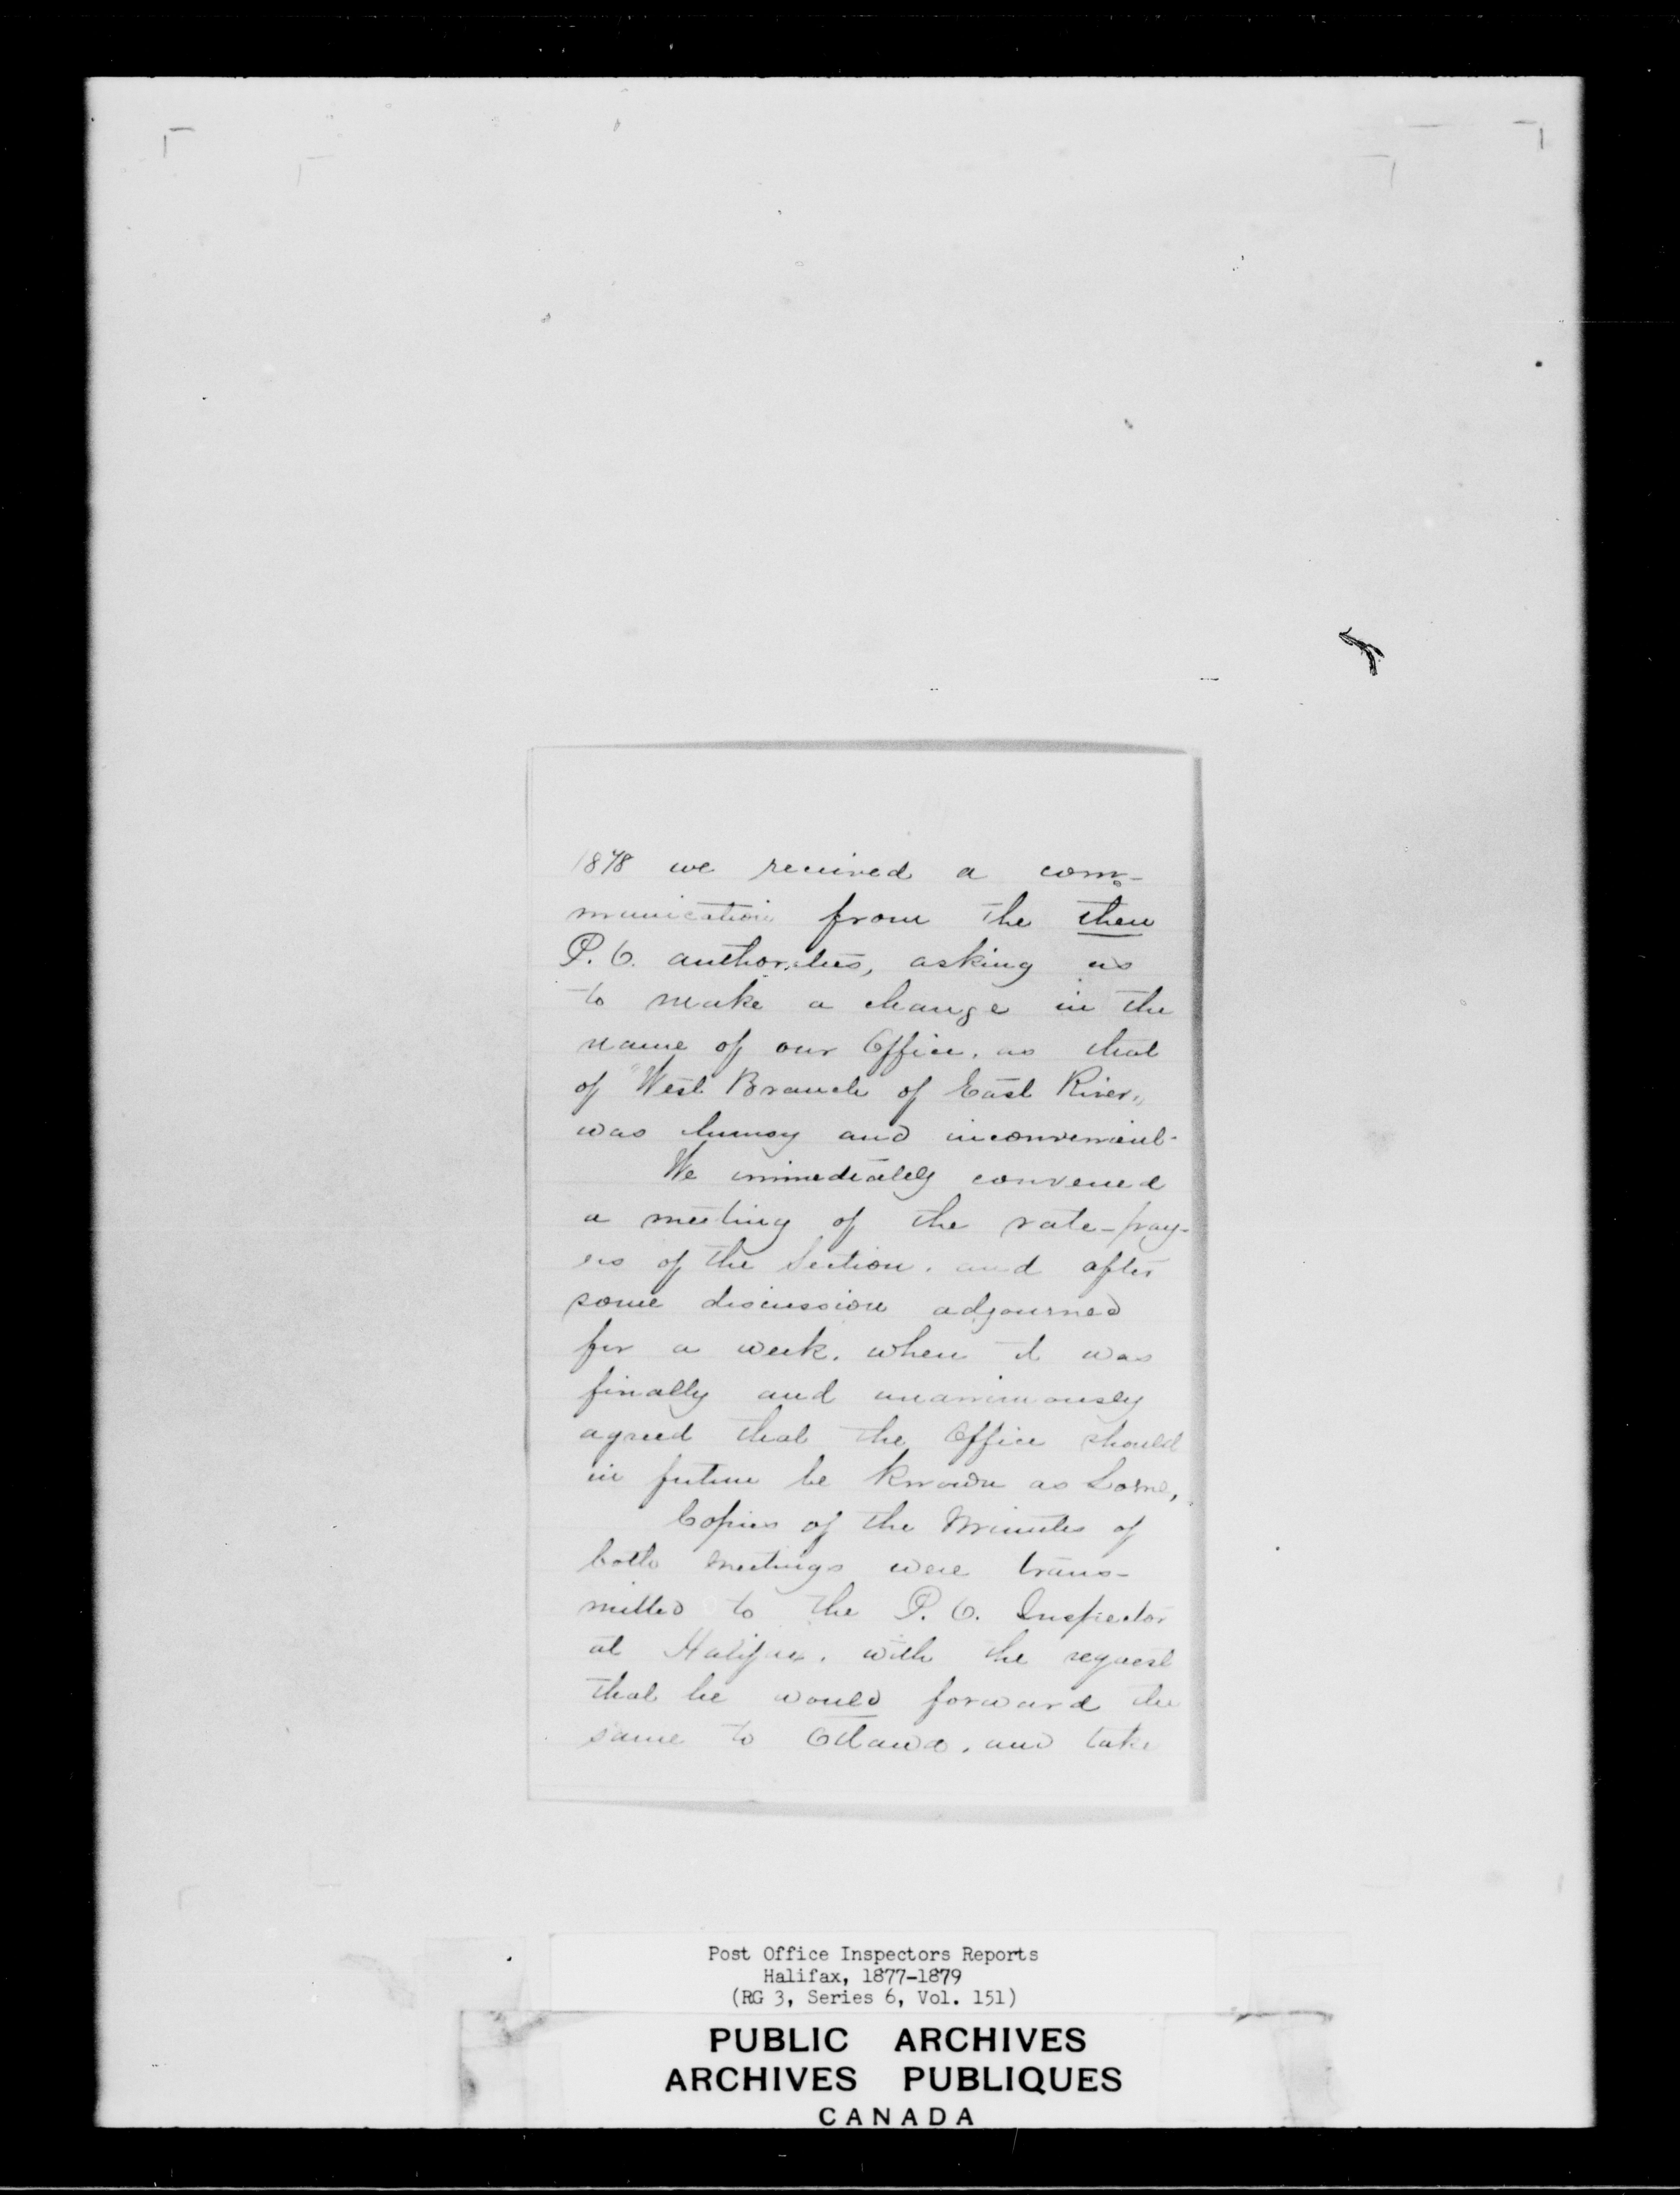 1878 we received a com-
munication from the then
P.O. authorities, asking us
to make a change in the
name of our Office, as that
of "West Branch of East River"
was clumsy and inconvenient.
We immediately convened
a meeting of the rate-pay-
ers of the Section, and after
some discussion adjourned
for a week, when it was
finally and unanimously
agreed that the Office should
in future be known as Lorne,
Copies of the Minutes of
both Meetings were trans-
mitted to the P.O. Inspector
at Halifax, with the request
that he would forward the
same to Ottawa, and take
Post Office Inspectors Reports
Halifax, 1877-1879
(RG 3, Series 6, Vol. 151)
PUBLIC ARCHIVES
ARCHIVES PUBLIQUES
CANADA